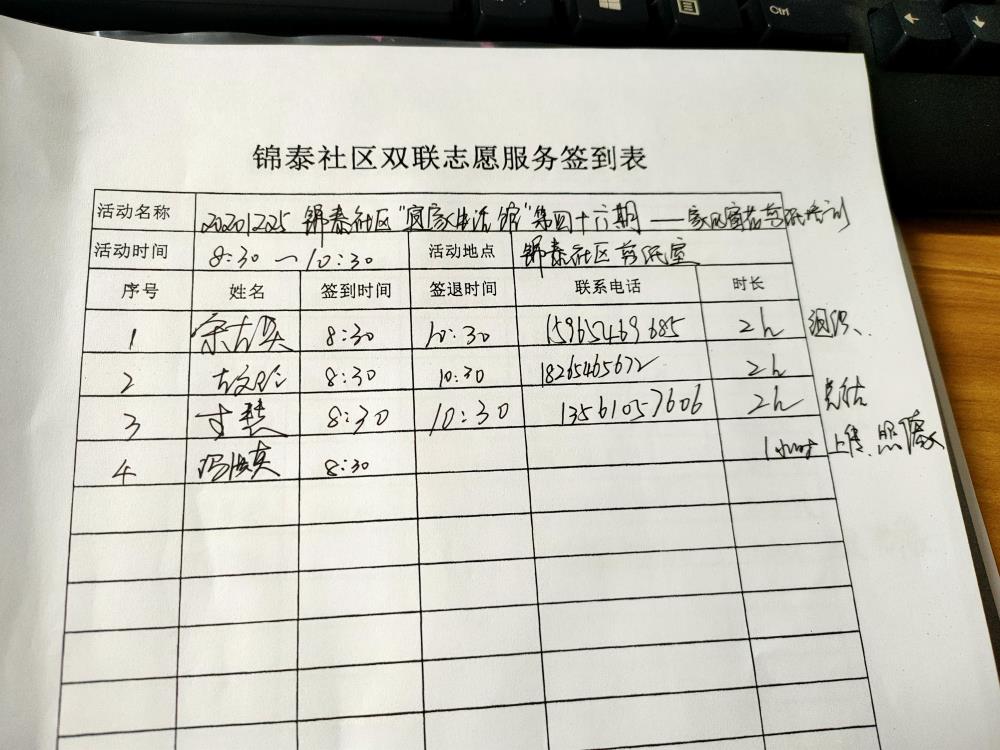 Ctrl
锦泰社区双联志愿服务签到表
活动名称 20201225 锦泰社区“宜家生活馆”第四十六期——家风窗花剪纸培训
活动时间 8:30—10:30 活动地点 锦泰社区剪纸室
序号 姓名 签到时间 签退时间 联系电话 时长
1 8:30 10:30 15965469685 2h 组织、
2 8:30 10:30 18265465672 2h
3 8:30 10:30 13561057606 2h
4 8:30 上传、照